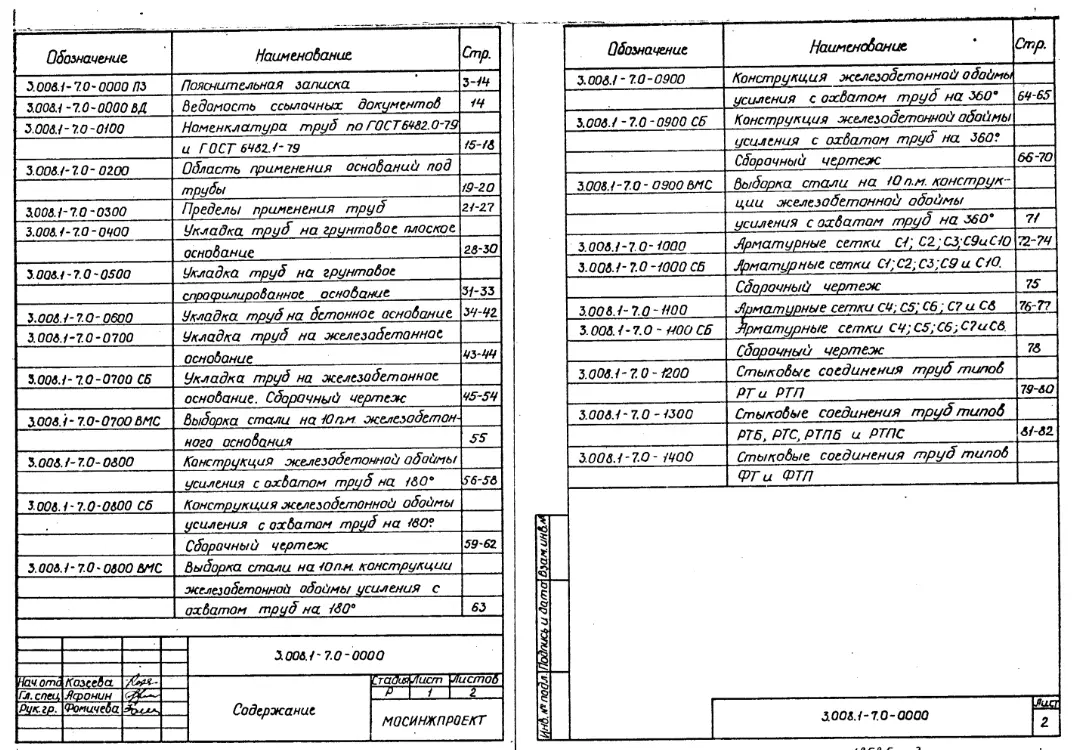 Обозначение Наименование Стр.
3.008.1-7.0-0000 ПЗ Пояснительная записка 3-14
3.008.1-7.0-0000 ВД Ведомость ссылочных документов 14
3.008.1-7.0-0100 Номенклатура труб по ГОСТ 6482.0-79
и ГОСТ 6482.1-79 15-18
3.008.1-7.0-0200 Область применения оснований под
трубы 19-20
3.008.1-7.0-0300 Пределы применения труб 21-27
3.008.1-7.0-0400 Укладка труб на грунтовое плоское
основание 28-30
3.008.1-7.0-0500 Укладка труб на грунтовое
спрофилированное основание 31-33
3.008.1-7.0-0600 Укладка труб на бетонное основание 34-42
3.008.1-7.0-0700 Укладка труб на железобетонное
основание 43-44
3.008.1-7.0-0700 СБ Укладка труб на железобетонное
основание. Сборочный чертеж 45-54
3.008.1-7.0-0700 ВМС Выборка стали на 10 п.м. железобетон-
ного основания 55
3.008.1-7.0-0800 Конструкция железобетонной обоймы
усиления с охватом труб на 180° 56-58
3.008.1-7.0-0800 СБ Конструкция железобетонной обоймы
усиления с охватом труб на 180°.
Сборочный чертеж 59-62
3.008.1-7.0-0800 ВМС Выборка стали на 10 п.м. конструкции
железобетонной обоймы усиления с
охватом труб на 180° 63
3.008.1-7.0-0000
Нач.отд Казеева
Гл.спец Афонин
Рук.гр. Фомичева
Содержание
Стадия Лист Листов
Р 1 2
МОСИНЖПРОЕКТ
Обозначение Наименование Стр.
3.008.1-7.0-0900 Конструкция железобетонной обоймы
усиления с охватом труб на 360° 64-65
3.008.1-7.0-0900 СБ Конструкция железобетонной обоймы
усиления с охватом труб на 360°.
Сборочный чертеж 66-70
3.008.1-7.0-0900 ВМС Выборка стали на 10 п.м. конструк-
ции железобетонной обоймы
усиления с охватом труб на 360° 71
3.008.1-7.0-1000 Арматурные сетки С1; С2; С3; С9 и С10 72-74
3.008.1-7.0-1000 СБ Арматурные сетки С1; С2; С3; С9 и С10.
Сборочный чертеж 75
3.008.1-7.0-1100 Арматурные сетки С4; С5; С6; С7 и С8 76-77
3.008.1-7.0-1100 СБ Арматурные сетки С4; С5; С6; С7 и С8.
Сборочный чертеж 78
3.008.1-7.0-1200 Стыковые соединения труб типов
РТ и РТП 79-80
3.008.1-7.0-1300 Стыковые соединения труб типов
РТБ, РТС, РТПБ и РТПС 81-82
3.008.1-7.0-1400 Стыковые соединения труб типов
ФТ и ФТП
Взам.инв.№
Подпись и дата
Инв.№ подл.
3.008.1-7.0-0000
Лист
2